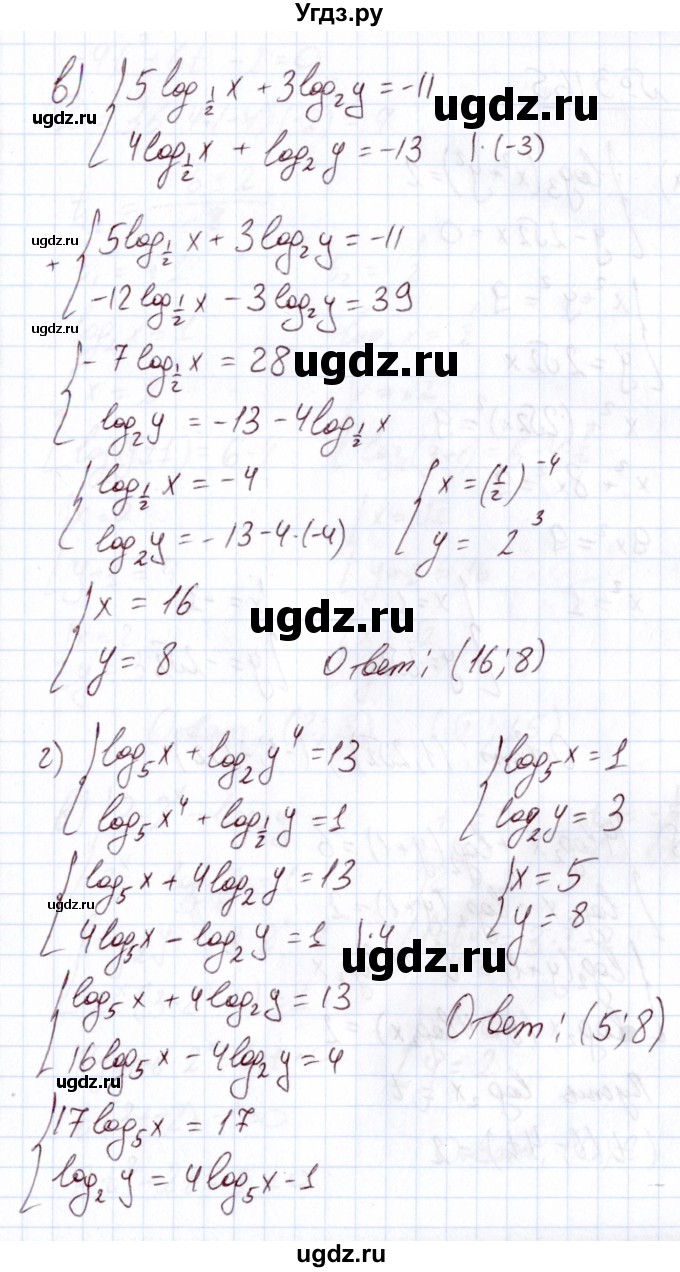 Угдз.ру
в) { 5 log_{1/2} x + 3 log_2 y = -11
4 log_{1/2} x + log_2 y = -13 |·(-3)
ugdz.ru
ugdz.ru
+ { 5 log_{1/2} x + 3 log_2 y = -11
-12 log_{1/2} x - 3 log_2 y = 39
ugdz.ru
{ -7 log_{1/2} x = 28
ugdz.ru
log_2 y = -13 - 4 log_{1/2} x
{ log_{1/2} x = -4
log_2 y = -13 - 4·(-4)
{ x = (1/2)^{-4}
y = 2^3
{ x = 16
ugdz.ru
y = 8 Ответ: (16; 8)
г) { log_5 x + log_2 y^4 = 13
log_5 x^4 + log_{1/2} y = 1
{ log_5 x = 1
log_2 y = 3
{ log_5 x + 4 log_2 y = 13
ugdz.ru
4 log_5 x - log_2 y = 1 |·4
{ x = 5
y = 8
ugdz.ru
{ log_5 x + 4 log_2 y = 13
16 log_5 x - 4 log_2 y = 4
Ответ: (5; 8)
ugdz.ru
{ 17 log_5 x = 17
log_2 y = 4 log_5 x - 1
ugdz.ru